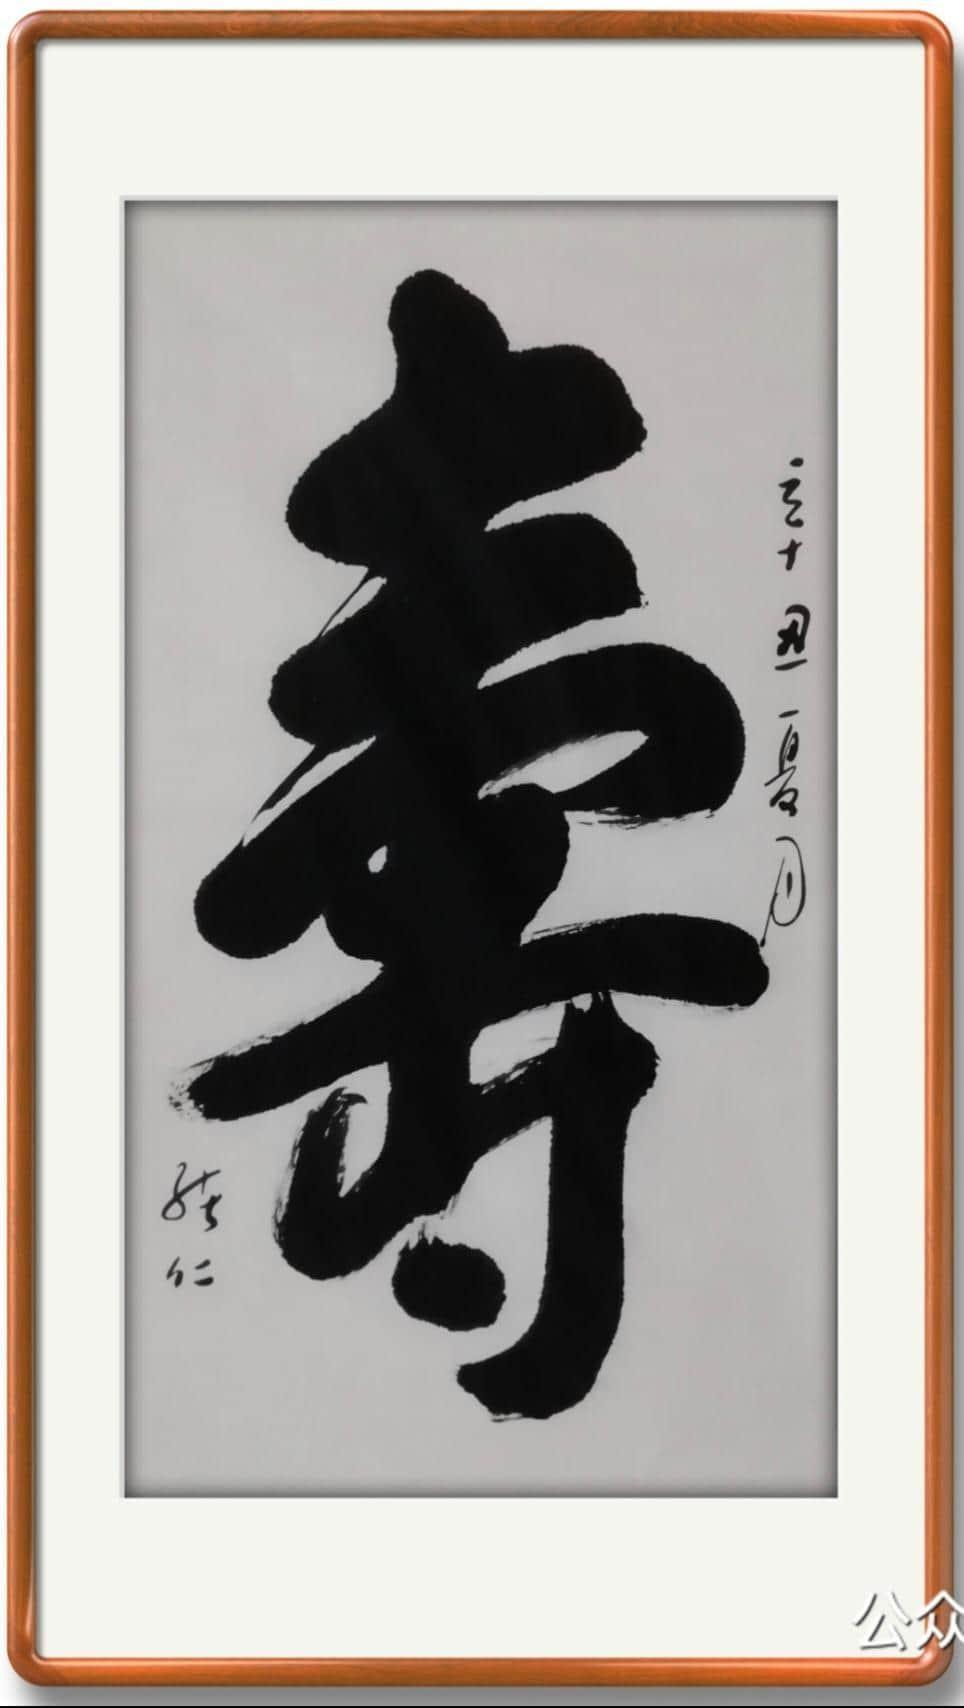 壽
辛丑夏月
仁
公众